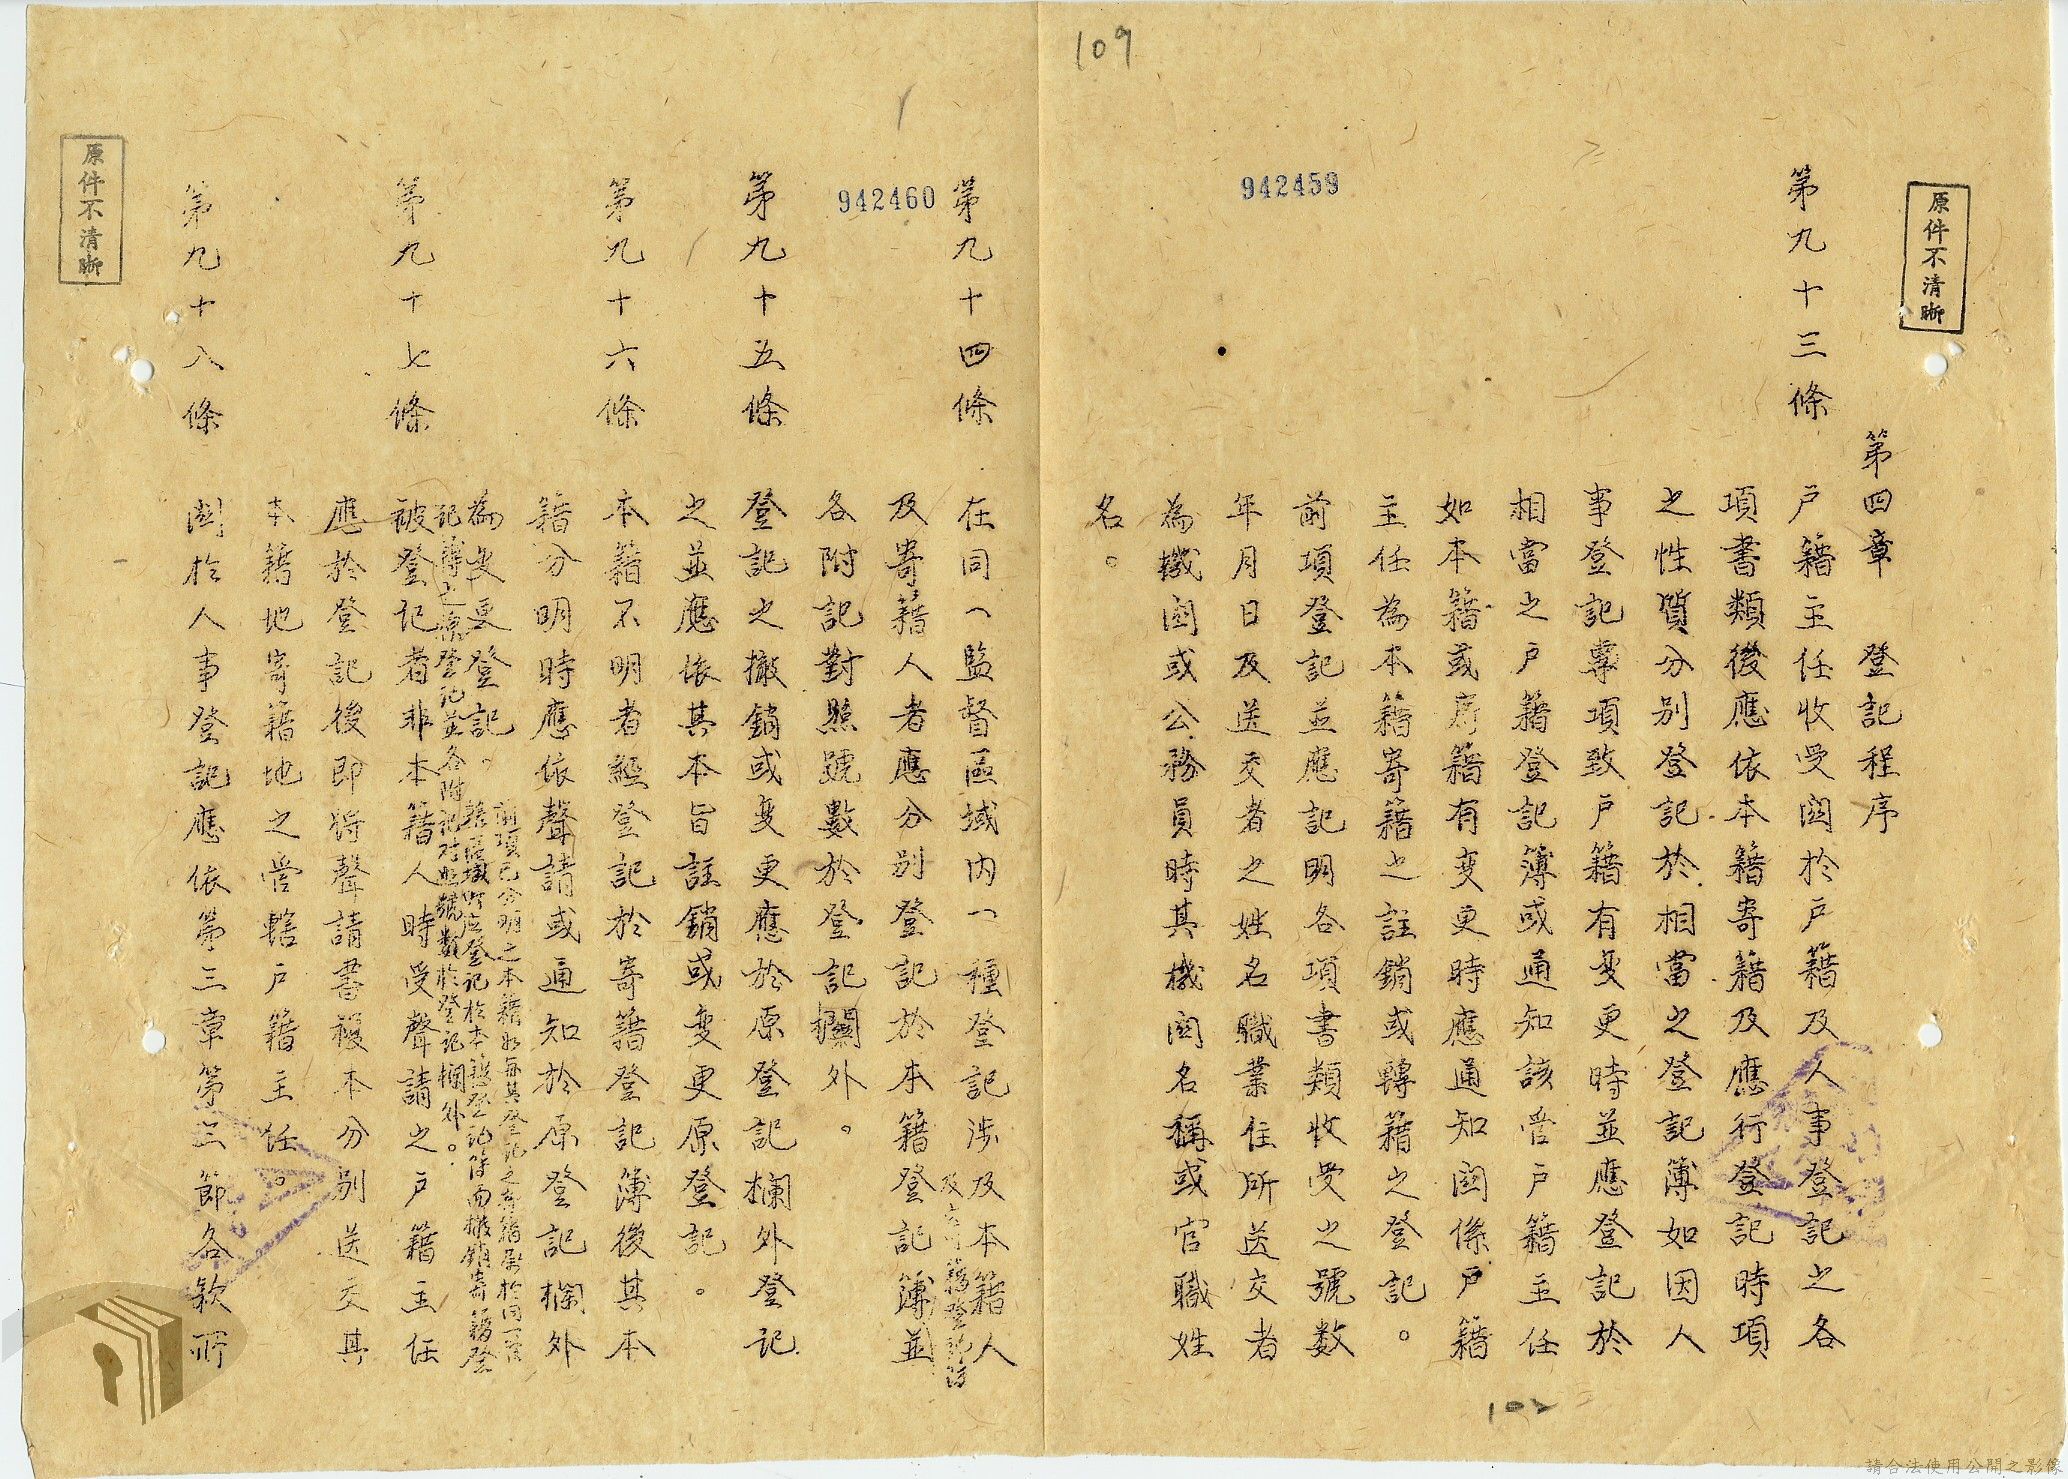 109
原件不清晰
942459
第四章　登記程序
第九十三條　戶籍主任收受関於戶籍及人事登記之各
項書類後應依本籍寄籍及應行登記時項
之性質分別登記於相當之登記簿如因人
事登記專項致戶籍有変更時並應登記於
相當之戶籍登記簿或通知該管戶籍主任
如本籍或寄籍有変更時應通知関係戶籍
主任為本籍寄籍之註銷或轉籍之登記。
前項登記並應記明各項書類收受之號数
年月日及送交者之姓名職業住所送交者
為機関或公務員時其機関名稱或官職姓
名。
102
942460
第九十四條　在同一監督區域內一種登記涉及本籍人
及寄籍人者應分別登記於本籍登記簿並
及寄籍登記簿
各附記對照號數於登記欄外。
第九十五條　登記之撤銷或変更應於原登記欄外登記
之並應依其本旨註銷或变更原登記。
第九十六條　本籍不明者經登記於寄籍登記簿後其本
籍分明時應依聲請或通知於原登記欄外
為变更登記。
前項已分明之本籍如與其登記之寄籍屬於同一管
轄區域時应登記於本籍登記簿而撤銷寄籍登
記簿之原登記並各附記对照號数於登記欄外。
第九十七條　被登記者非本籍人時受聲請之戶籍主任
應於登記後即将聲請書複本分別送交其
本籍地寄籍地之管轄戶籍主任。
第九十八條　関於人事登記應依第三章第三節各欵所
原件不清晰
請合法使用公開之影像